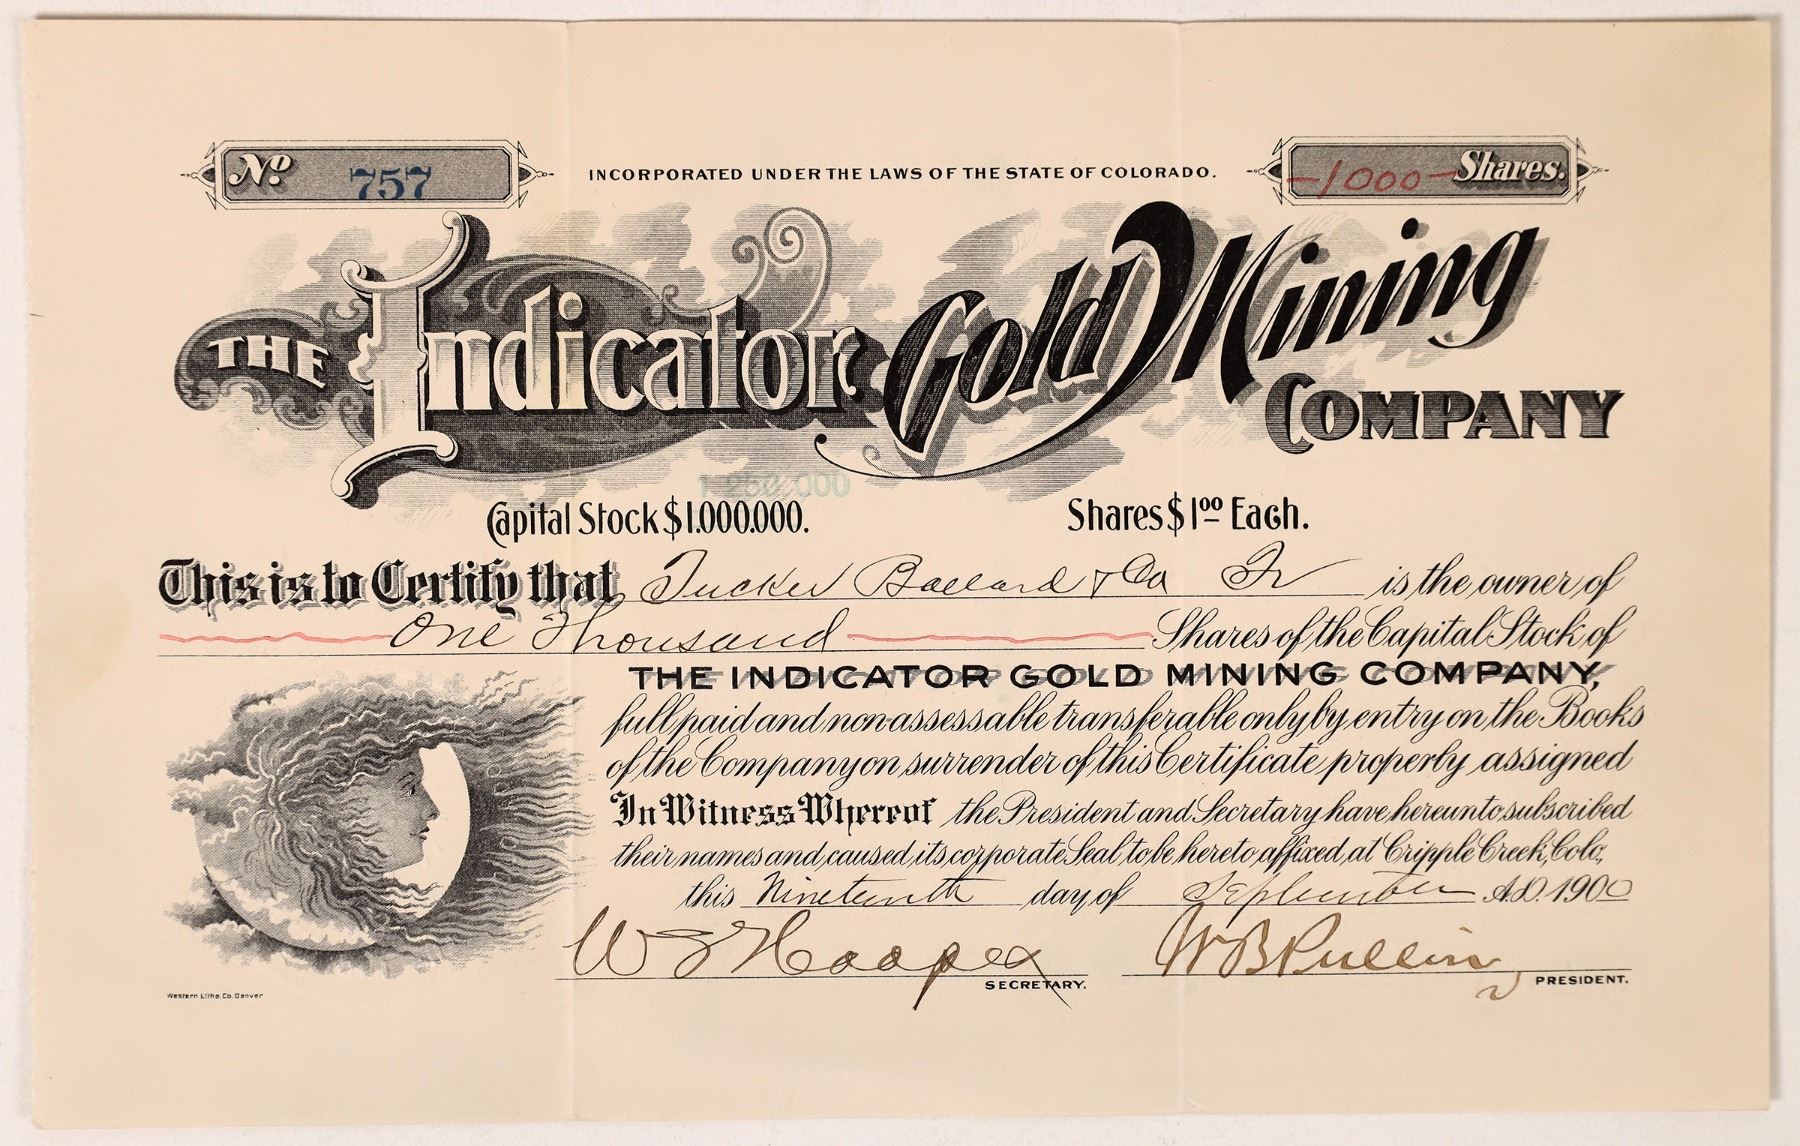 No. 757
INCORPORATED UNDER THE LAWS OF THE STATE OF COLORADO.
-1000- Shares.
THE Indicator Gold Mining
COMPANY
1,250,000
Capital Stock $1.000.000. Shares $1.00 Each.
This is to Certify that Tucker Ballard & Co Tr is the owner of
One Thousand Shares of the Capital Stock of
THE INDICATOR GOLD MINING COMPANY,
full paid and non-assessable transferable only by entry on the Books
of the Company on surrender of this Certificate properly assigned
In Witness Whereof the President and Secretary have hereunto subscribed
their names and caused its corporate Seal to be hereto affixed, at Cripple Creek, Colo.,
this Nineteenth day of September A.D. 1900
W S Hooper W B Pullin
SECRETARY. PRESIDENT.
Western Litho. Co. Denver